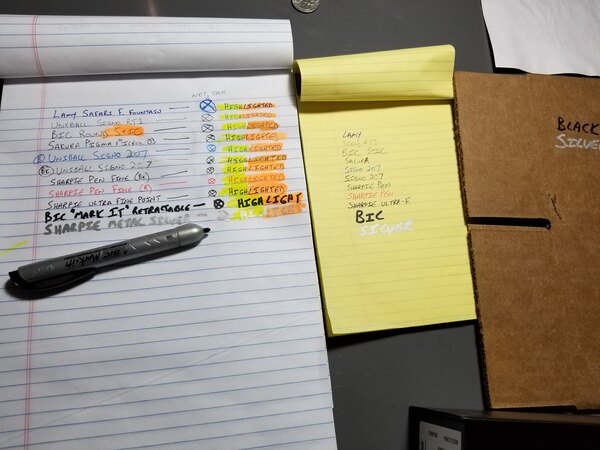 WET TEST
LAMY SAFARI F. FOUNTAIN — HIGHLIGHTED
UNIBALL SIGNO RT1 — HIGHLIGHTED
BIC ROUND STIC — HIGHLIGHTED
SAKURA PIGMA MICRON — HIGHLIGHTED
(B) UNIBALL SIGNO 207 — HIGHLIGHTED
(BK) UNIBALL SIGNO 207 — HIGHLIGHTED
SHARPIE PEN FINE (BK) — HIGHLIGHTED
SHARPIE PEN FINE (R) — HIGHLIGHTED
SHARPIE ULTRA FINE POINT — HIGHLIGHTED
BIC "MARK IT" RETRACTABLE — HIGHLIGHT
SHARPIE METAL SILVER — HIGHLIGHT
BIC Mark it
LAMY
SIGNO RT1
BIC STIC
SAKURA
SIGNO 207
SIGNO 207
SHARPIE PEN
SHARPIE PEN
SHARPIE ULTRA-F.
BIC
SILVER
BLACK
SILVER